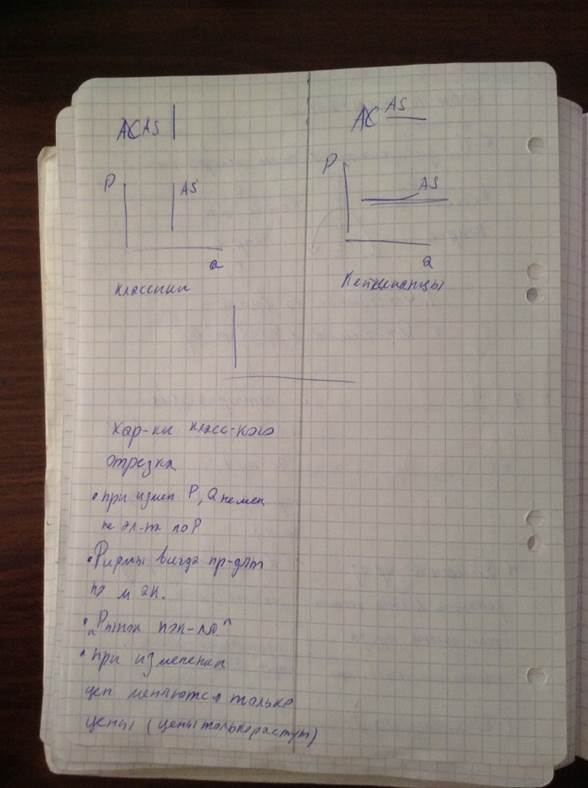 АС AS
АС AS
P
AS
Q
классики
P
AS
Q
Кейнсианцы
Хар-ки класс-кого
отрезка
• при измен P, Q не мен
не эл-на по P
• Фирмы всегда пр-дят
•
• при изменении
цен меняются только
цены (цены только растут)